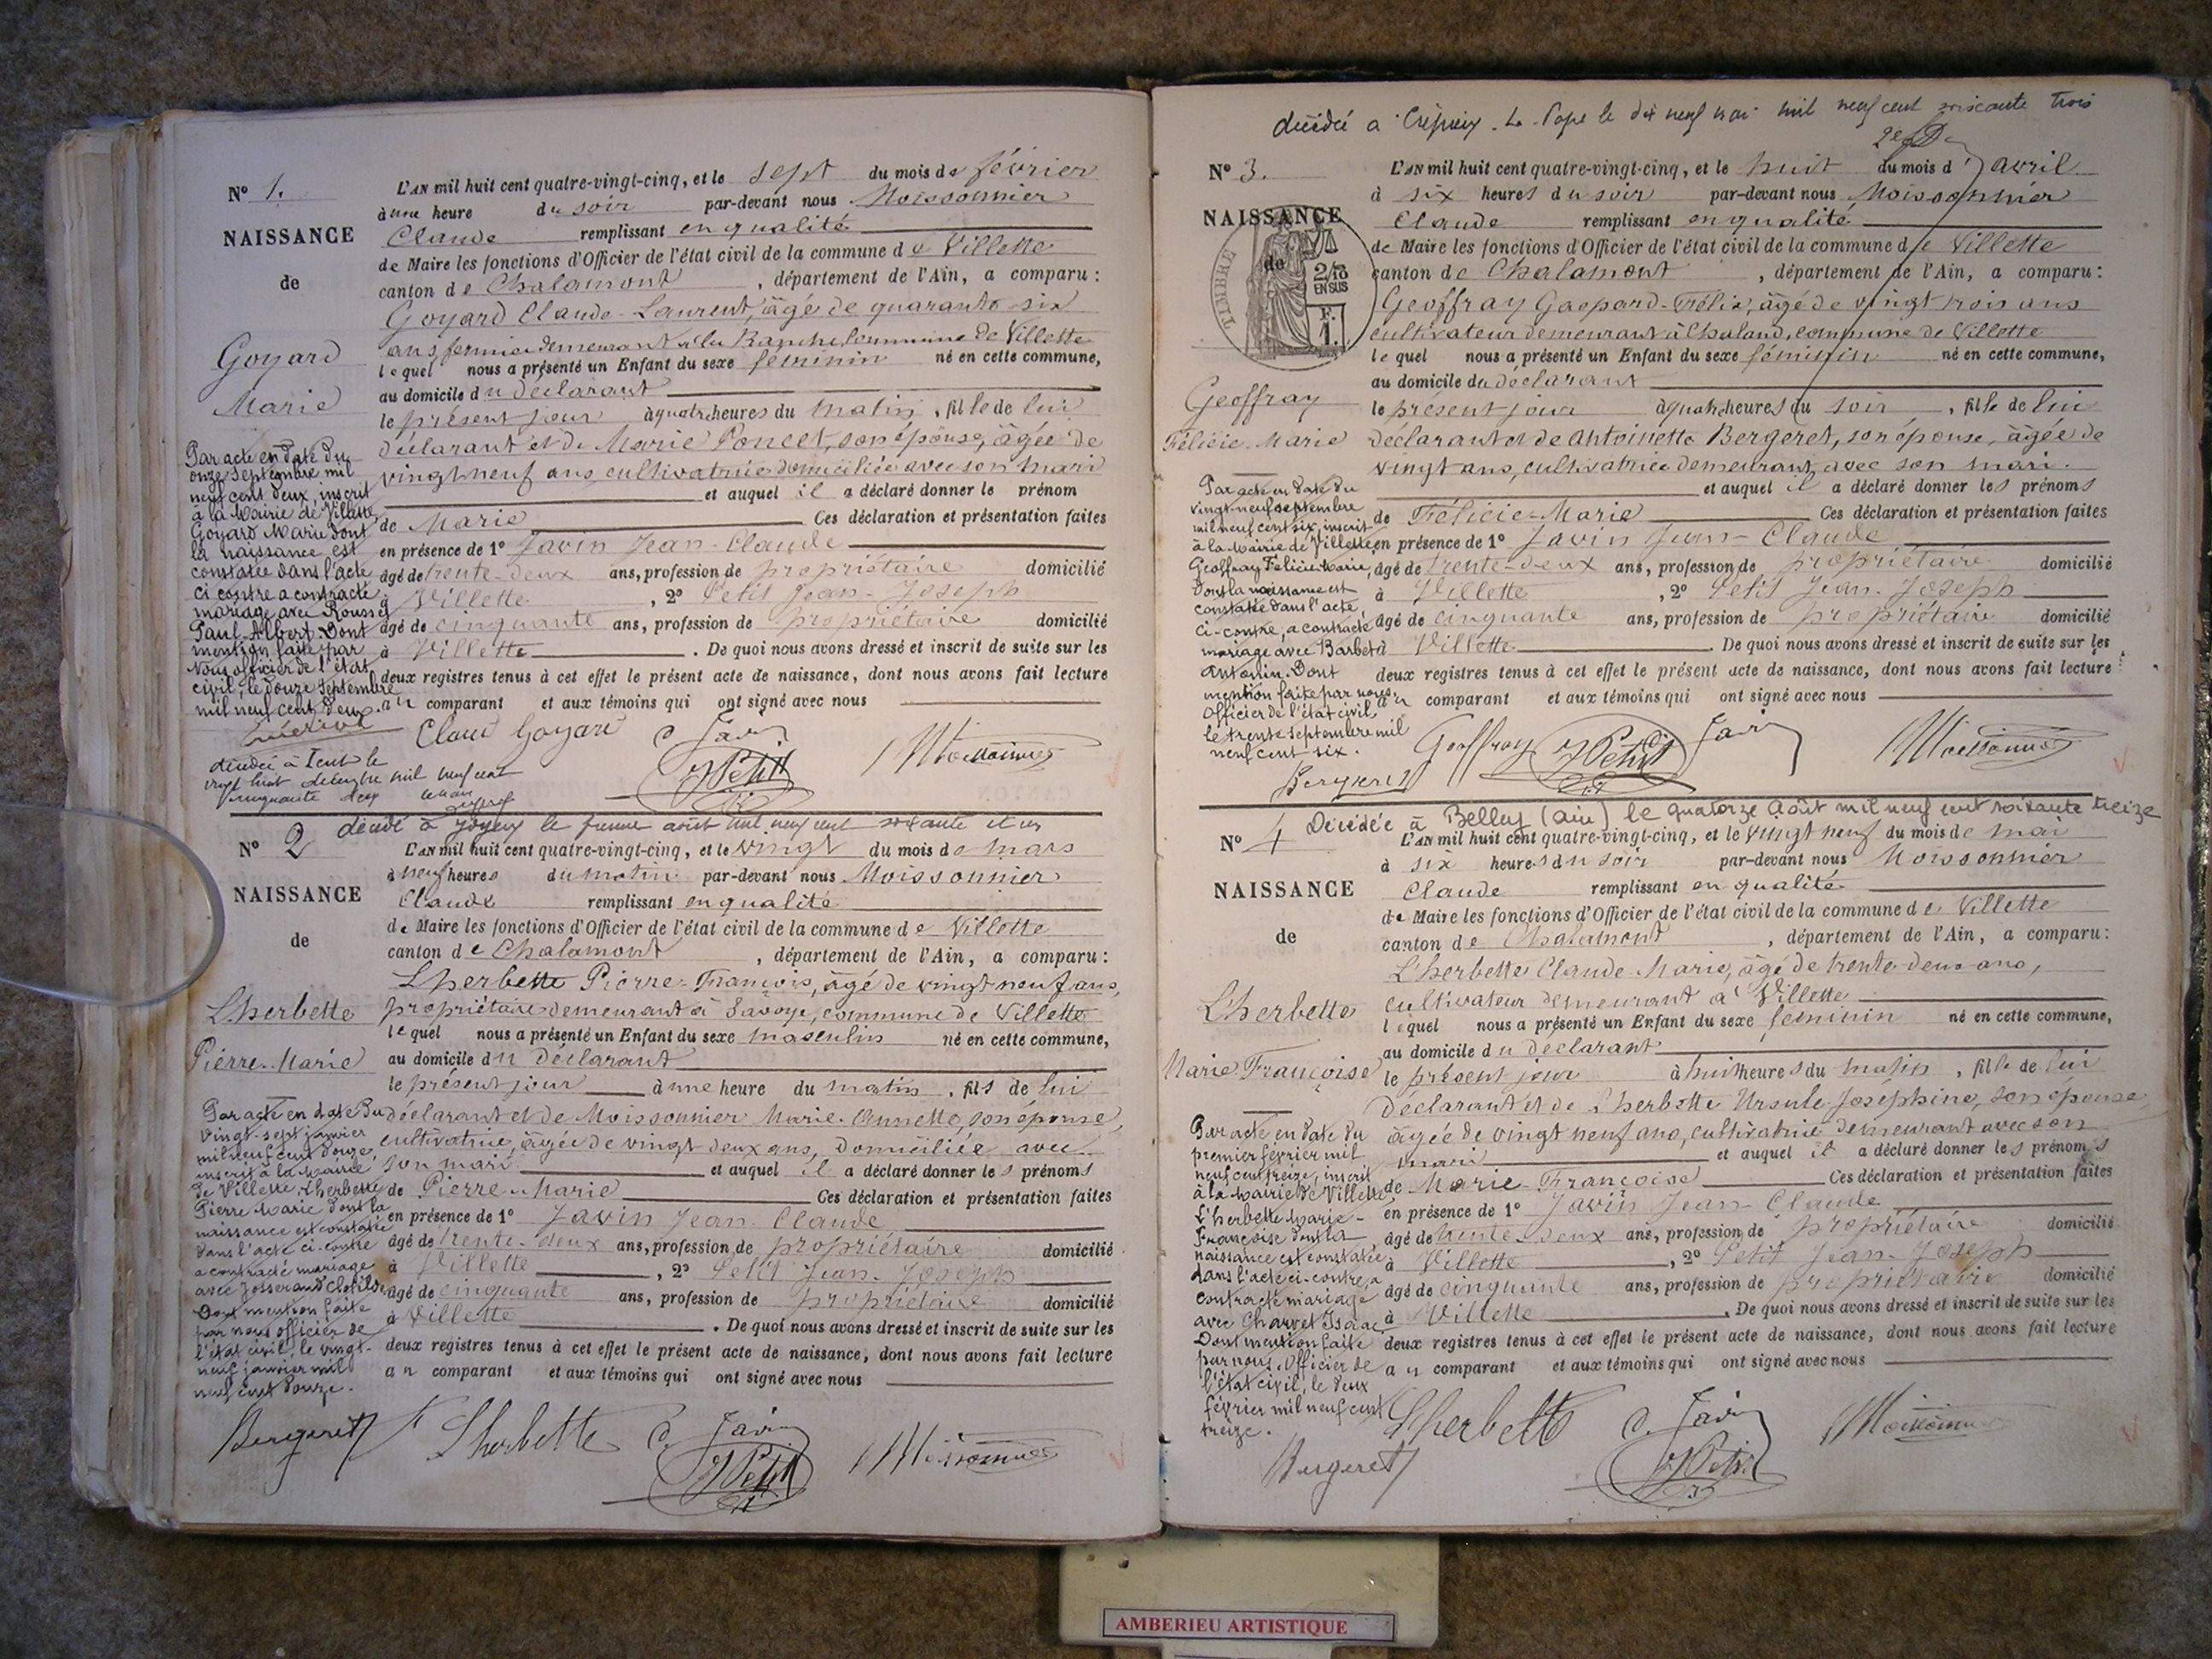 N° 1.
NAISSANCE
de
Goyard
Marie
L'AN mil huit cent quatre-vingt-cinq, et le sept du mois de février
à une heure du soir par-devant nous Moissonnier
Claude remplissant en qualité
de Maire les fonctions d'Officier de l'état civil de la commune de Villette
canton de Chalamont, département de l'Ain, a comparu :
Goyard Claude-Laurent, âgé de quarante-six
ans, fermier demeurant à la Ranche, commune de Villette
lequel nous a présenté un Enfant du sexe féminin né en cette commune,
au domicile du déclarant
le présent jour à quatre heures du matin, fille de lui
déclarant et de Marie Poncet, son épouse, âgée de
vingt neuf ans, cultivatrice domiciliée avec son mari
et auquel il a déclaré donner le prénom
de Marie Ces déclaration et présentation faites
en présence de 1° Javin Jean-Claude
âgé de trente-deux ans, profession de propriétaire domicilié
à Villette, 2° Petit Jean-Joseph
âgé de cinquante ans, profession de propriétaire domicilié
à Villette. De quoi nous avons dressé et inscrit de suite sur les
deux registres tenus à cet effet le présent acte de naissance, dont nous avons fait lecture
au comparant et aux témoins qui ont signé avec nous
Par acte en date du
onze Septembre mil
neuf cent deux, inscrit
à la Mairie de Villette,
Goyard Marie dont
la naissance est
constatée dans l'acte
ci contre a contracté
mariage avec Rousset
Paul-Albert. Dont
mention faite par
Nous officier de l'état
civil, le douze Septembre
mil neuf cent deux.
Claud Goyard C Javin Moissonnier
J Petit
décédée à le
vingt huit décembre mil neuf cent
cinquante deux
N° 2
NAISSANCE
de
Lherbette
Pierre-Marie
décédé à Joyeux le premier août mil neuf cent soixante et un
L'AN mil huit cent quatre-vingt-cinq, et le vingt du mois de mars
à neuf heures du matin par-devant nous Moissonnier
Claude remplissant en qualité
de Maire les fonctions d'Officier de l'état civil de la commune de Villette
canton de Chalamont, département de l'Ain, a comparu :
Lherbette Pierre-François, âgé de vingt neuf ans,
propriétaire demeurant à Savoye, commune de Villette
lequel nous a présenté un Enfant du sexe masculin né en cette commune,
au domicile du déclarant
le présent jour à une heure du matin, fils de lui
déclarant et de Moissonnier Marie-Annette, son épouse,
cultivatrice, âgée de vingt deux ans, domiciliée avec
son mari et auquel il a déclaré donner les prénoms
de Pierre-Marie Ces déclaration et présentation faites
en présence de 1° Javin Jean-Claude
âgé de trente-deux ans, profession de propriétaire domicilié
à Villette, 2° Petit Jean-Joseph
âgé de cinquante ans, profession de propriétaire domicilié
à Villette. De quoi nous avons dressé et inscrit de suite sur les
deux registres tenus à cet effet le présent acte de naissance, dont nous avons fait lecture
au comparant et aux témoins qui ont signé avec nous
Par acte en date du
vingt-sept janvier
mil neuf cent douze,
inscrit à la Mairie
de Villette Lherbette
Pierre Marie dont la
naissance est constatée
dans l'acte ci-contre
a contracté mariage
avec Josserand Clotilde
Dont mention faite
par nous officier de
l'état civil, le vingt-
neuf janvier mil
neuf cent douze.
Bergeret F Lherbette C. Javin Moissonnier
J Petit
décédée a Crépieux-La-Pape le dix neuf mai mil neuf cent soixante trois
N° 3.
NAISSANCE
de
TIMBRE
2/10
EN SUS
F.
1.
Geoffray
Félicie-Marie
L'AN mil huit cent quatre-vingt-cinq, et le huit du mois d'avril
à six heures du soir par-devant nous Moissonnier
Claude remplissant en qualité
de Maire les fonctions d'Officier de l'état civil de la commune de Villette
canton de Chalamont, département de l'Ain, a comparu :
Geoffray Gaspard-Félix, âgé de vingt trois ans
cultivateur demeurant à Chaland, commune de Villette
lequel nous a présenté un Enfant du sexe féminin né en cette commune,
au domicile du déclarant
le présent jour à quatre heures du soir, fille de lui
déclarant et de Antoinette Bergeret, son épouse, âgée de
vingt ans, cultivatrice demeurant avec son mari.
et auquel il a déclaré donner les prénoms
de Félicie-Marie Ces déclaration et présentation faites
en présence de 1° Javin Jean-Claude
âgé de trente-deux ans, profession de propriétaire domicilié
à Villette, 2° Petit Jean-Joseph
âgé de cinquante ans, profession de propriétaire domicilié
à Villette. De quoi nous avons dressé et inscrit de suite sur les
deux registres tenus à cet effet le présent acte de naissance, dont nous avons fait lecture
au comparant et aux témoins qui ont signé avec nous
Par acte en date du
vingt-neuf septembre
mil neuf cent six, inscrit
à la Mairie de Villette
Geoffray Félicie Marie,
dont la naissance est
constatée dans l'acte
ci-contre, a contracté
mariage avec Barbet
Antonin. Dont
mention faite par nous,
Officier de l'état civil,
le trente septembre mil
neuf cent six.
Bergeret Geoffray J Petit Javin Moissonnier
N° 4
NAISSANCE
de
L'herbette
Marie Françoise
Décédée à Belley (ain) le quatorze août mil neuf cent soixante treize
L'AN mil huit cent quatre-vingt-cinq, et le vingt neuf du mois de mai
à six heures du soir par-devant nous Moissonnier
Claude remplissant en qualité
de Maire les fonctions d'Officier de l'état civil de la commune de Villette
canton de Chalamont, département de l'Ain, a comparu :
L'herbette Claude-Marie, âgé de trente-deux ans,
cultivateur demeurant à Villette
lequel nous a présenté un Enfant du sexe féminin né en cette commune,
au domicile du déclarant
le présent jour à huit heures du matin, fille de lui
déclarant et de Lherbette Ursule-Joséphine, son épouse,
âgée de vingt neuf ans, cultivatrice demeurant avec son
mari et auquel il a déclaré donner les prénoms
de Marie-Françoise Ces déclaration et présentation faites
en présence de 1° Javin Jean-Claude
âgé de trente-deux ans, profession de propriétaire domicilié
à Villette, 2° Petit Jean-Joseph
âgé de cinquante ans, profession de propriétaire domicilié
à Villette. De quoi nous avons dressé et inscrit de suite sur les
deux registres tenus à cet effet le présent acte de naissance, dont nous avons fait lecture
au comparant et aux témoins qui ont signé avec nous
Par acte en date du
premier février mil
neuf cent treize, inscrit
à la Mairie de Villette
L'herbette Marie-
Françoise dont la
naissance est constatée
dans l'acte ci-contre, a
contracté mariage
avec Charvet Isaac
Dont mention faite
par nous, Officier de
l'état civil, le deux
février mil neuf cent
treize.
Bergeret Lherbette C. Javin Moissonnier
J Petit
AMBERIEU ARTISTIQUE